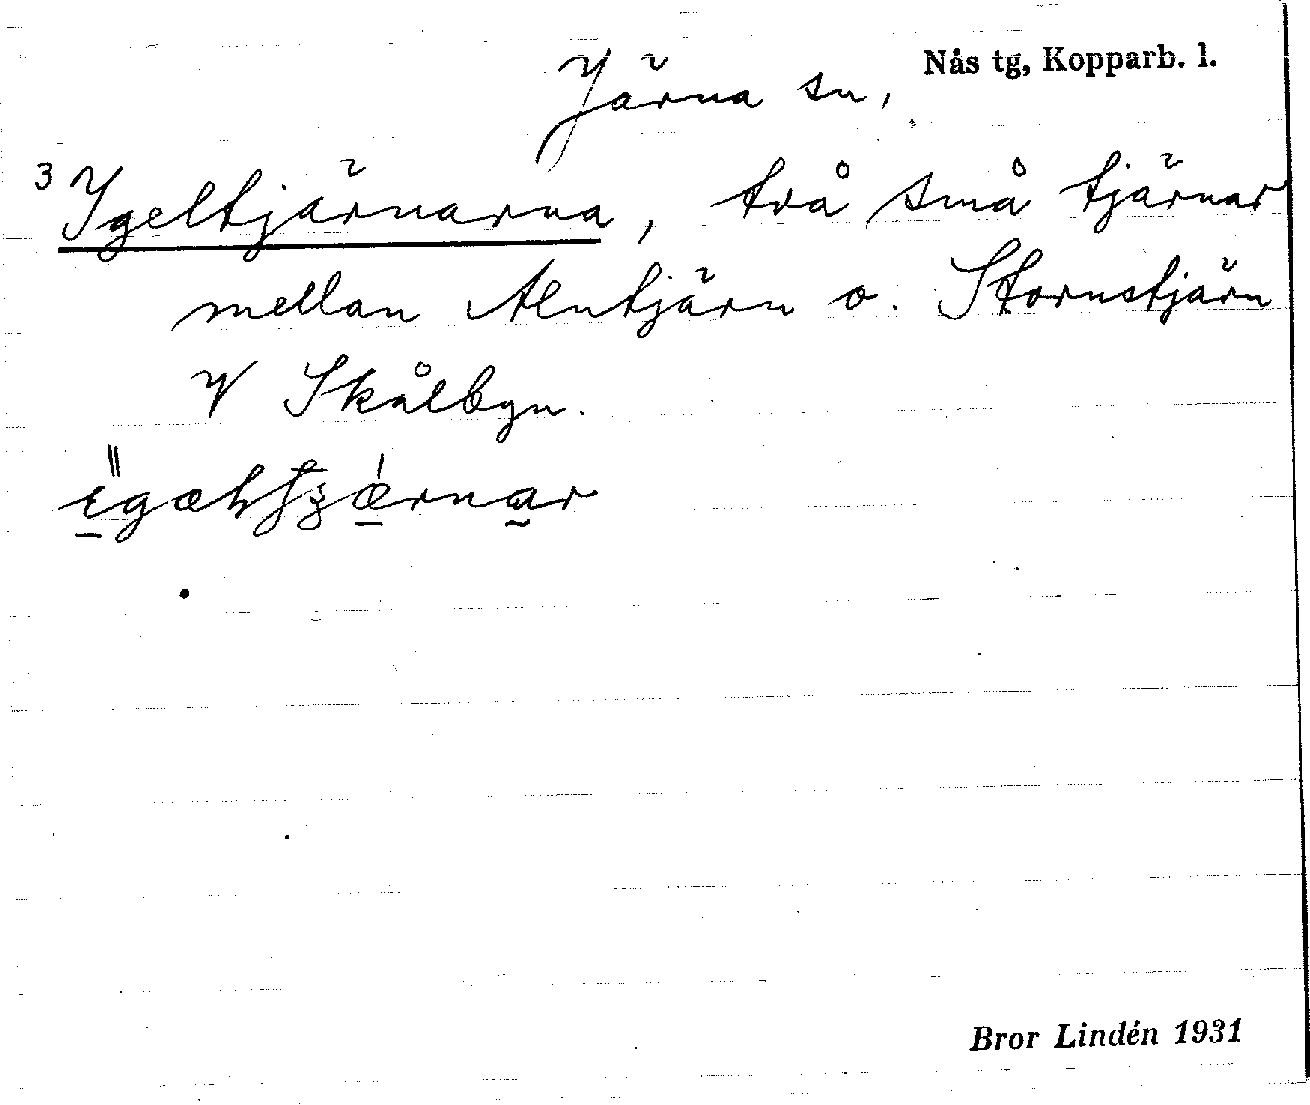 Järna sn, Nås tg, Kopparb. l.
3 Igeltjärnarna, två små tjärnar
mellan Alntjärn o. Stornstjärn
V Skålbyn.
Bror Lindén 1931